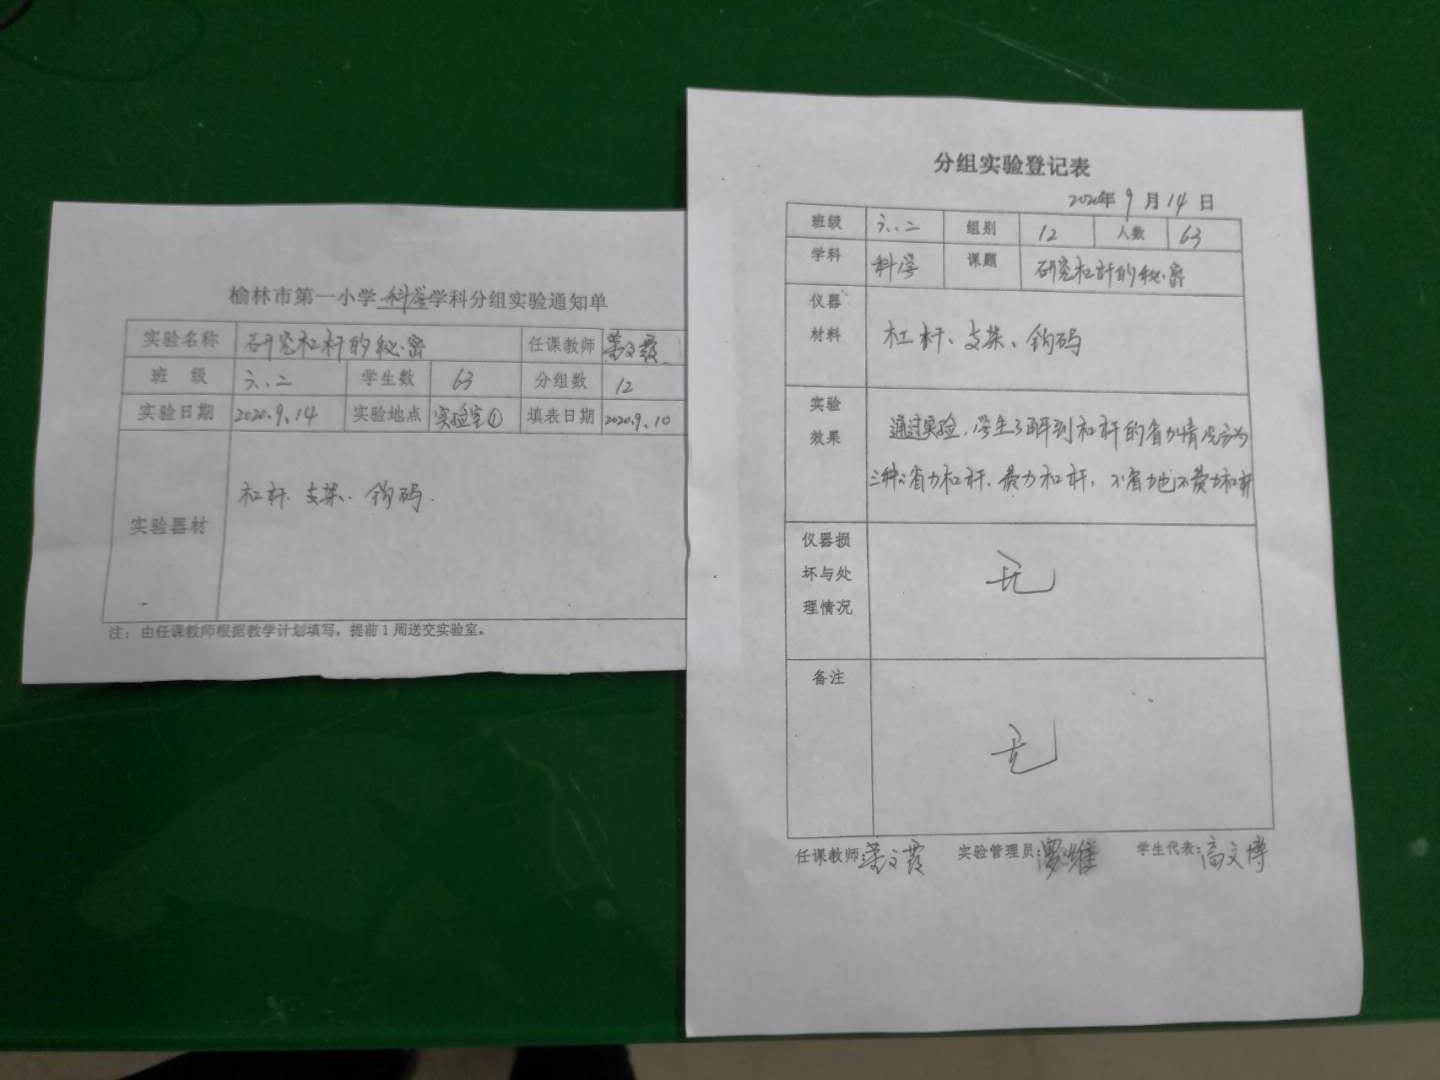 榆林市第一小学科学学科分组实验通知单
实验名称 研究杠杆的秘密 任课教师 文霞
班 级 六、二 学生数 63 分组数 12
实验日期 2020.9.14 实验地点 实验室① 填表日期 2020.9.10
实验器材 杠杆、支架、钩码.
注：由任课教师根据教学计划填写，提前1周送交实验室。
分组实验登记表
2020年 9 月 14 日
班级 六、二 组别 12 人数 63
学科 科学 课题 研究杠杆的秘密
仪器
材料
杠杆、支架、钩码
实验
效果
通过实验，学生了解到杠杆的省力情况分为
三种：省力杠杆、费力杠杆，不省力也不费力杠杆
仪器损
坏与处
理情况
无
备注
无
任课教师 文霞 实验管理员: 学生代表: 高文博